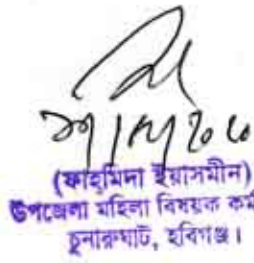 (ফাহমিদা ইয়াসমীন)
উপজেলা মহিলা বিষয়ক কর্ম
চুনারুঘাট, হবিগঞ্জ।